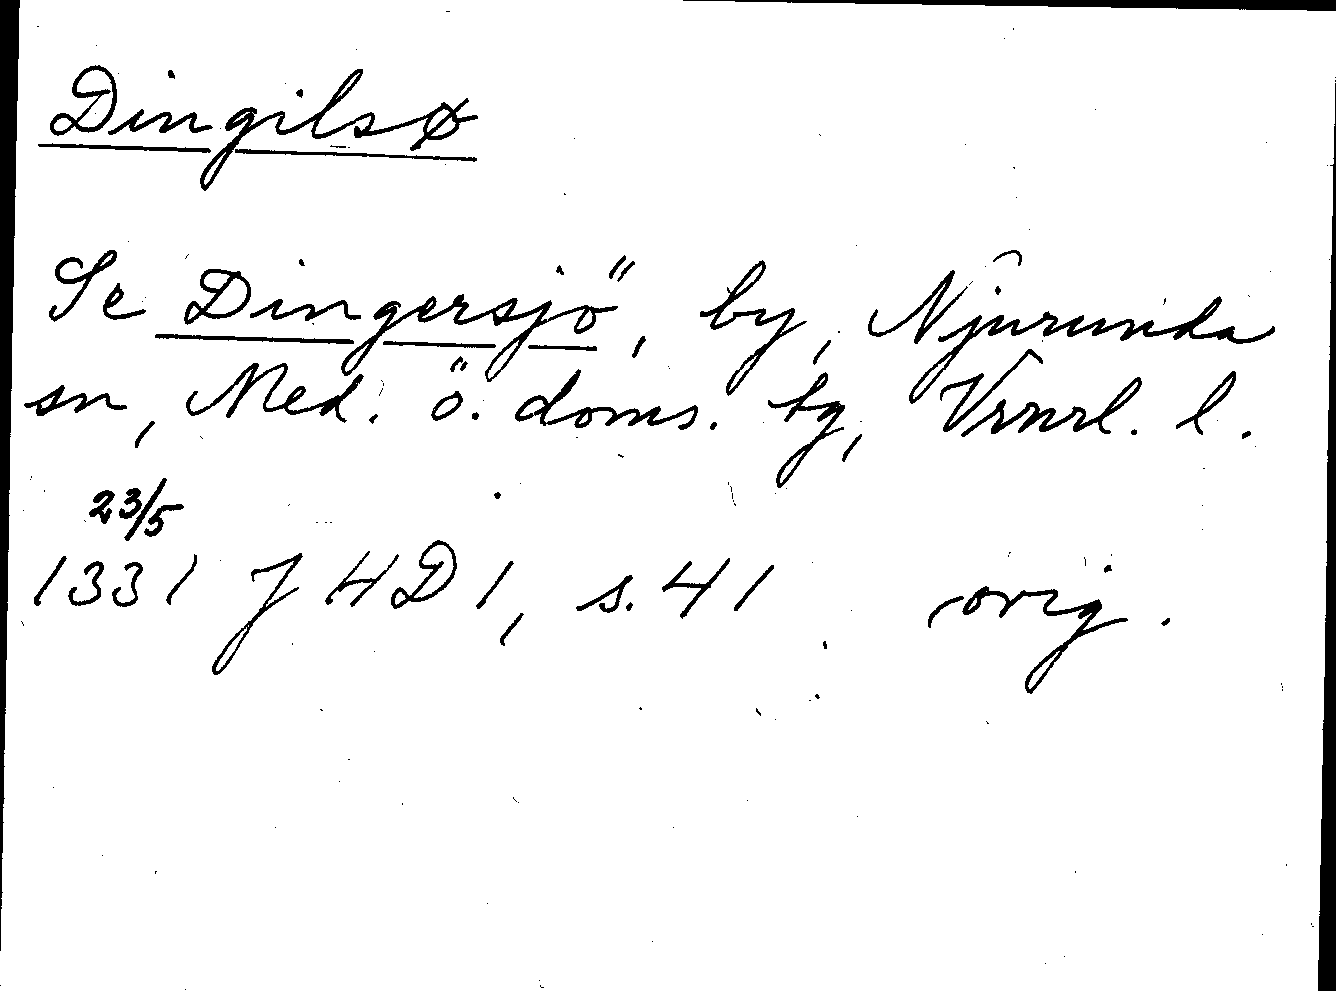 Dingilsø
Se Dingersjö, by, Njurunda
sn, Med. ö. doms. tg, Vrnrl. l.
23/5
1331 JHD 1, s. 41 orig.